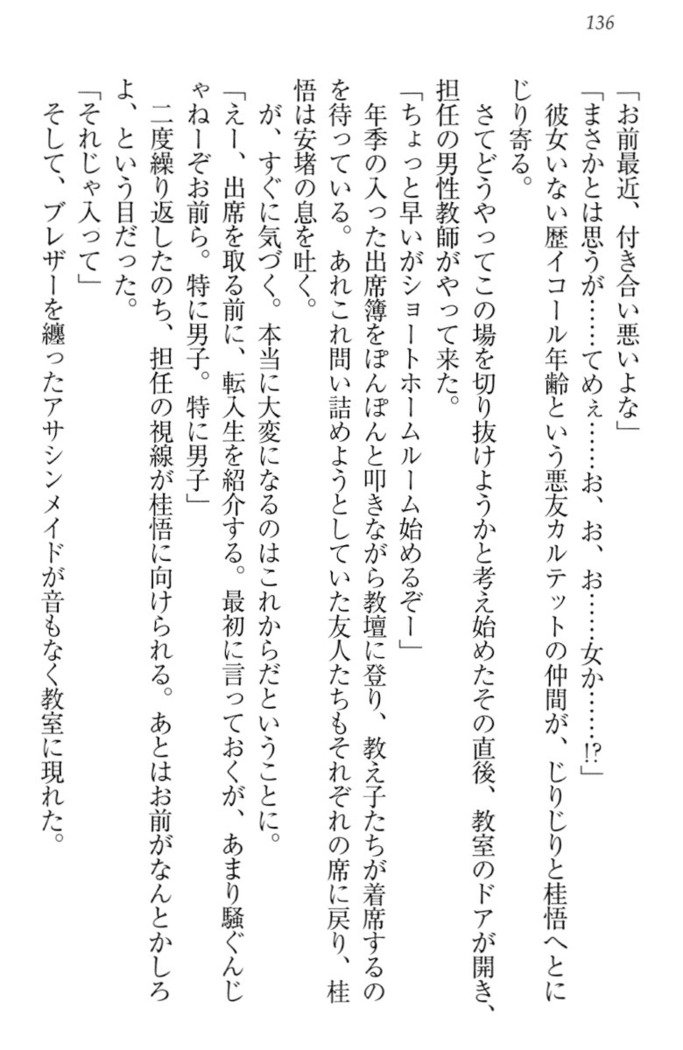 136
「お前最近、付き合い悪いよな」
「まさかとは思うが……てめぇ……お、お、お……女か……!?」
　彼女いない歴イコール年齢という悪友カルテットの仲間が、じりじりと桂悟へとに
じり寄る。
　さてどうやってこの場を切り抜けようかと考え始めたその直後、教室のドアが開き、
担任の男性教師がやって来た。
「ちょっと早いがショートホームルーム始めるぞー」
　年季の入った出席簿をぽんぽんと叩きながら教壇に登り、教え子たちが着席するの
を待っている。あれこれ問い詰めようとしていた友人たちもそれぞれの席に戻り、桂
悟は安堵の息を吐く。
　が、すぐに気づく。本当に大変になるのはこれからだということに。
「えー、出席を取る前に、転入生を紹介する。最初に言っておくが、あまり騒ぐんじ
ゃねーぞお前ら。特に男子。特に男子」
　二度繰り返したのち、担任の視線が桂悟に向けられる。あとはお前がなんとかしろ
よ、という目だった。
「それじゃ入って」
　そして、ブレザーを纏ったアサシンメイドが音もなく教室に現れた。